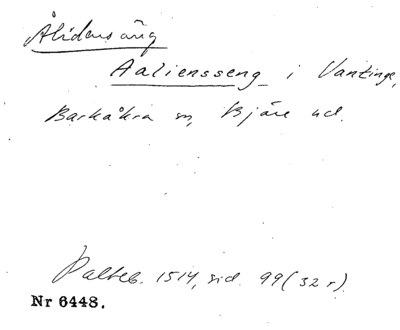 Ålidersäng
Aaliensseng i Vantinge,
Barkåkra sn, Bjäre hd.
Palteb. 1514, sid. 99 (52 r).
Nr 6448.